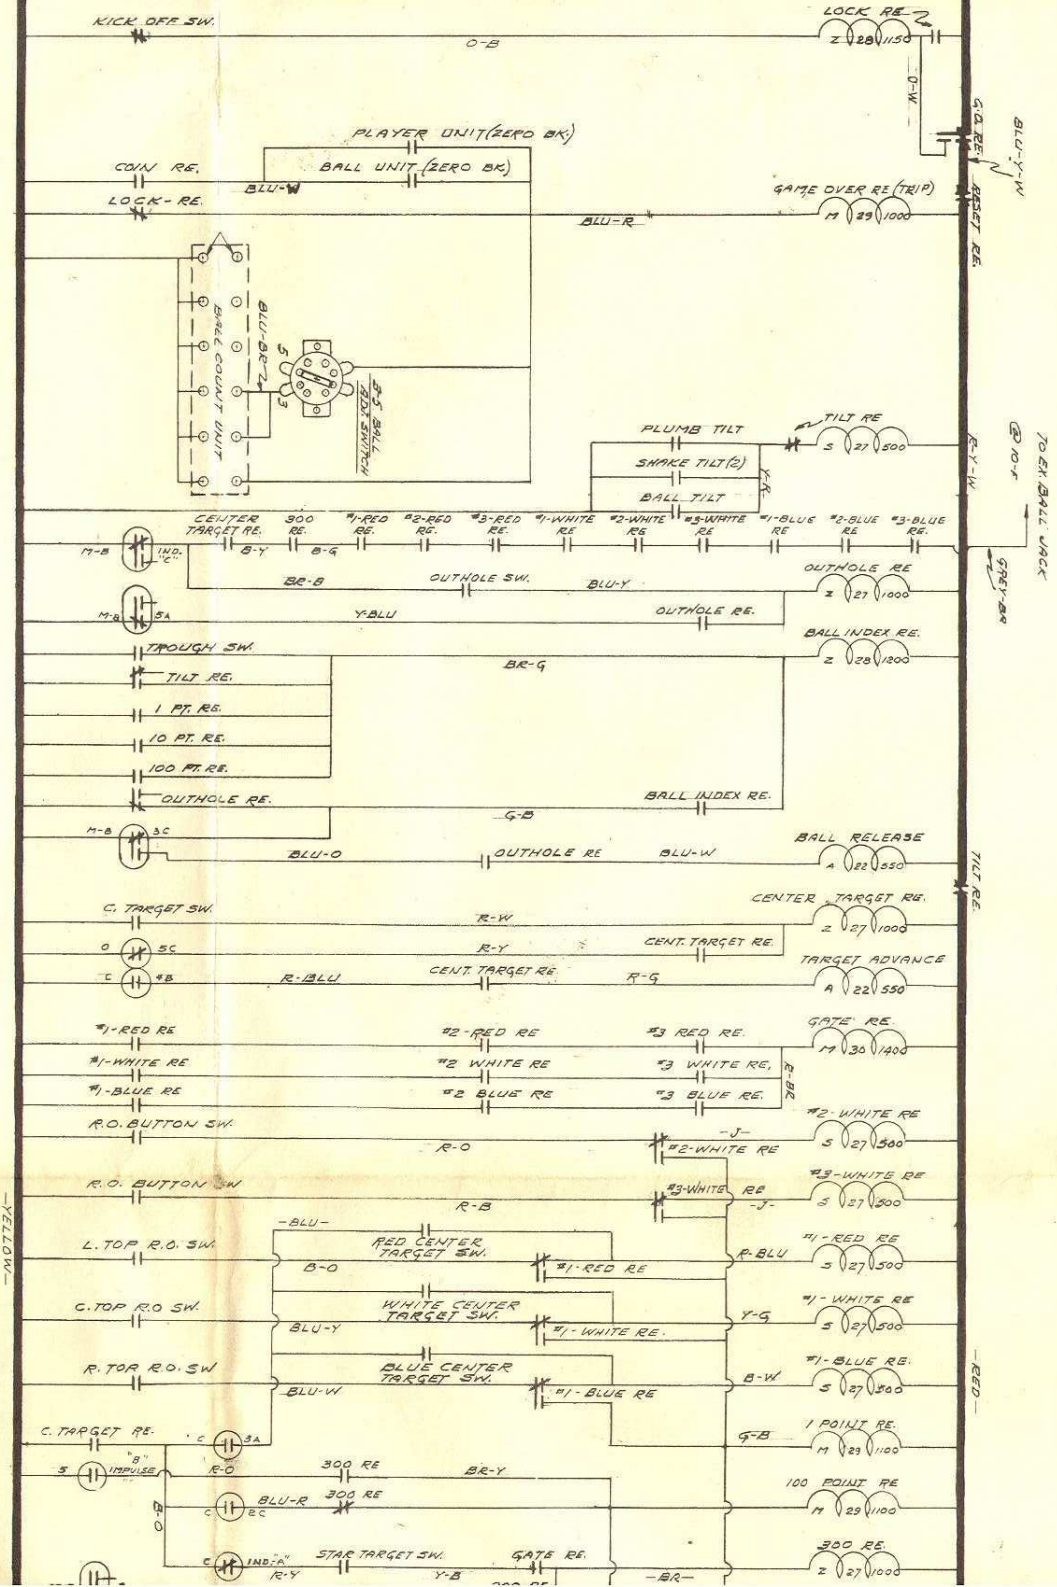 KICK OFF SW.
LOCK RE
O-B
Z 28 1150
O-W
G.O. RE.
BLU-Y-W
PLAYER UNIT (ZERO BK.)
COIN RE.
BLU-W
BALL UNIT (ZERO BK)
LOCK-RE.
BLU-R
GAME OVER RE (TRIP)
M 29 1000
RESET RE.
BALL COUNT UNIT
BLU-BR
5
3
3-5 BALL
ADJ. SWITCH
TILT RE
PLUMB TILT
S 27 500
SHAKE TILT (2)
Y-R
BALL TILT
R-Y-W
TO EX. BALL JACK
@ 10-F
CENTER TARGET RE.
300 RE.
#1-RED RE.
#2-RED RE.
#3-RED RE.
#1-WHITE RE.
#2-WHITE RE
#3-WHITE RE
#1-BLUE RE
#2-BLUE RE
#3-BLUE RE.
M-B
IND. "C"
B-Y
B-G
GREY-BR
BR-B
OUTHOLE SW.
BLU-Y
OUTHOLE RE
Z 27 1000
M-B
5A
Y-BLU
OUTHOLE RE.
BALL INDEX RE.
TROUGH SW.
BR-G
Z 28 1200
TILT RE.
1 PT. RE.
10 PT. RE.
100 PT. RE.
OUTHOLE RE.
G-B
BALL INDEX RE.
M-B
3C
BLU-O
OUTHOLE RE
BLU-W
BALL RELEASE
A 22 550
TILT RE.
C. TARGET SW.
R-W
CENTER TARGET RE.
Z 27 1000
O
5C
R-Y
CENT. TARGET RE.
C
4B
R-BLU
CENT. TARGET RE
R-G
TARGET ADVANCE
A 22 550
#1-RED RE
#2-RED RE
#3 RED RE.
GATE RE.
M 30 1400
#1-WHITE RE
#2 WHITE RE
#3 WHITE RE.
R-BR
#1-BLUE RE
#2 BLUE RE
#3 BLUE RE.
R.O. BUTTON SW.
R-O
-J-
#2-WHITE RE
#2-WHITE RE
S 27 500
R.O. BUTTON SW
R-B
#3-WHITE RE
-J-
#3-WHITE RE
S 27 500
-YELLOW-
-BLU-
L. TOP R.O. SW.
RED CENTER
TARGET SW.
B-O
#1-RED RE
R-BLU
#1-RED RE
S 27 500
C. TOP R.O SW.
WHITE CENTER
TARGET SW.
BLU-Y
#1-WHITE RE.
Y-G
#1-WHITE RE
S 27 500
R. TOP R.O. SW
BLUE CENTER
TARGET SW.
BLU-W
#1-BLUE RE
B-W
#1-BLUE RE.
S 27 500
-RED-
C. TARGET RE.
C
3A
G-B
1 POINT RE.
M 29 1100
S
"B"
IMPULSE
R-O
300 RE
BR-Y
B-O
C
2C
BLU-R
300 RE
100 POINT RE
M 29 1100
C
IND-"A"
R-Y
STAR TARGET SW.
Y-B
GATE RE.
-BR-
300 RE.
Z 27 1000
300 RE